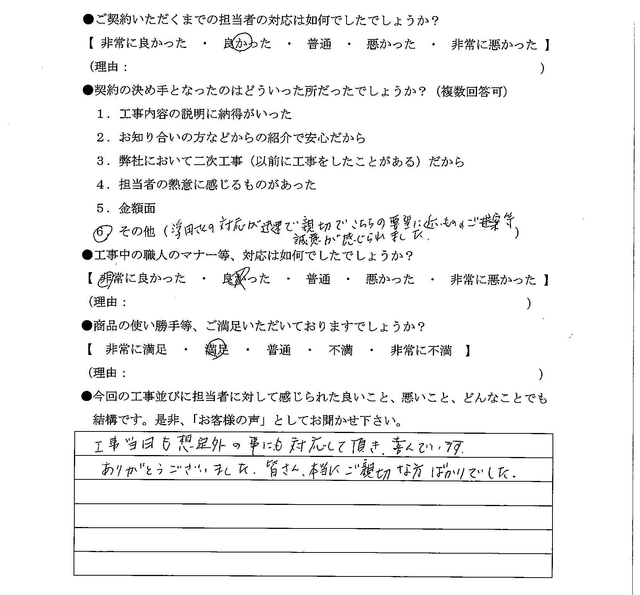 ●ご契約いただくまでの担当者の対応は如何でしたでしょうか？
【 非常に良かった ・ 良かった ・ 普通 ・ 悪かった ・ 非常に悪かった 】
（理由： ）
●契約の決め手となったのはどういった所だったでしょうか？（複数回答可）
1．工事内容の説明に納得がいった
2．お知り合いの方などからの紹介で安心だから
3．弊社において二次工事（以前に工事をしたことがある）だから
4．担当者の熱意に感じるものがあった
5．金額面
6 その他（浮田さんの対応が迅速で親切でこちらの要望に近いものをご提案等
誠意が感じられました．）
●工事中の職人のマナー等、対応は如何でしたでしょうか？
【 非常に良かった ・ 良かった ・ 普通 ・ 悪かった ・ 非常に悪かった 】
（理由： ）
●商品の使い勝手等、ご満足いただいておりますでしょうか？
【 非常に満足 ・ 満足 ・ 普通 ・ 不満 ・ 非常に不満 】
（理由： ）
●今回の工事並びに担当者に対して感じられた良いこと、悪いこと、どんなことでも
結構です。是非、「お客様の声」としてお聞かせ下さい。
工事当日も想定外の事にも対応して頂き、喜んでいます．
ありがとうございました．皆さん、本当にご親切な方ばかりでした．